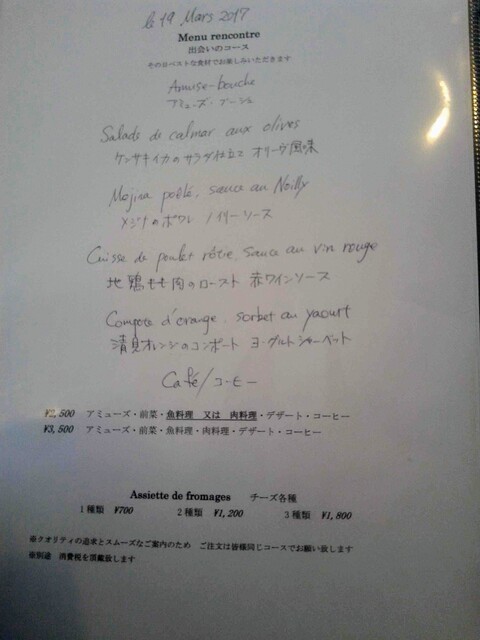 le 19 Mars 2017
Menu rencontre
出会いのコース
その日ベストな食材でお楽しみいただきます
Amuse-bouche
アミューズ・ブーシュ
Salade de calmar aux olives
ケンサキイカのサラダ仕立て オリーヴ風味
Mejina poêlé, sauce au Noilly
メジナのポワレ ノイリーソース
Cuisse de poulet rôtie, sauce au vin rouge
地鶏もも肉のロースト 赤ワインソース
Compote d'orange, sorbet au yaourt
清見オレンジのコンポート ヨーグルトシャーベット
Café/コーヒー
¥2,500 アミューズ・前菜・魚料理 又は 肉料理・デザート・コーヒー
¥3,500 アミューズ・前菜・魚料理・肉料理・デザート・コーヒー
Assiette de fromages チーズ各種
1種類 ¥700 2種類 ¥1,200 3種類 ¥1,800
※クオリティの追求とスムーズなご案内のため ご注文は皆様同じコースでお願い致します
※別途 消費税を頂戴致します